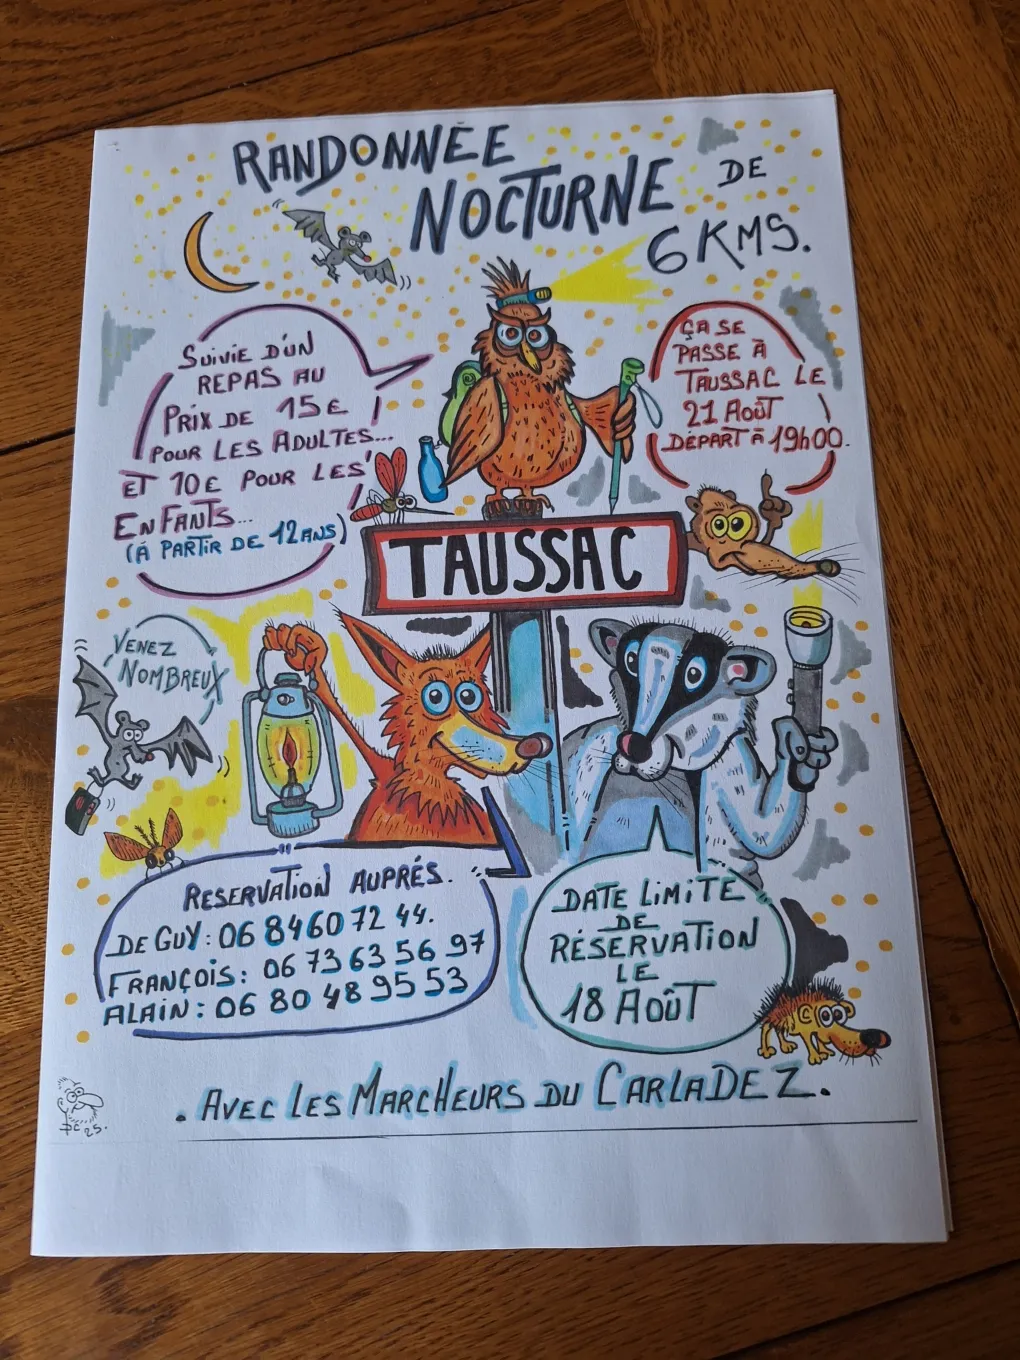 RANDONNÉE
NOCTURNE DE
6 KMS.
SUIVIE D'UN
REPAS AU
PRIX DE 15€
POUR LES ADULTES...
ET 10€ POUR LES
ENFANTS...
(À PARTIR DE 12ANS)
ÇA SE
PASSE À
TAUSSAC LE
21 AOÛT
DÉPART À 19H00.
TAUSSAC
VENEZ
NOMBREUX
RESERVATION AUPRÉS.
DE GUY: 06 84 60 72 44.
FRANÇOIS: 06 73 63 56 97
ALAIN: 06 80 48 95 53
DATE LIMITE
DE
RÉSERVATION
LE
18 AOÛT
. AVEC LES MARCHEURS DU CARLADEZ.